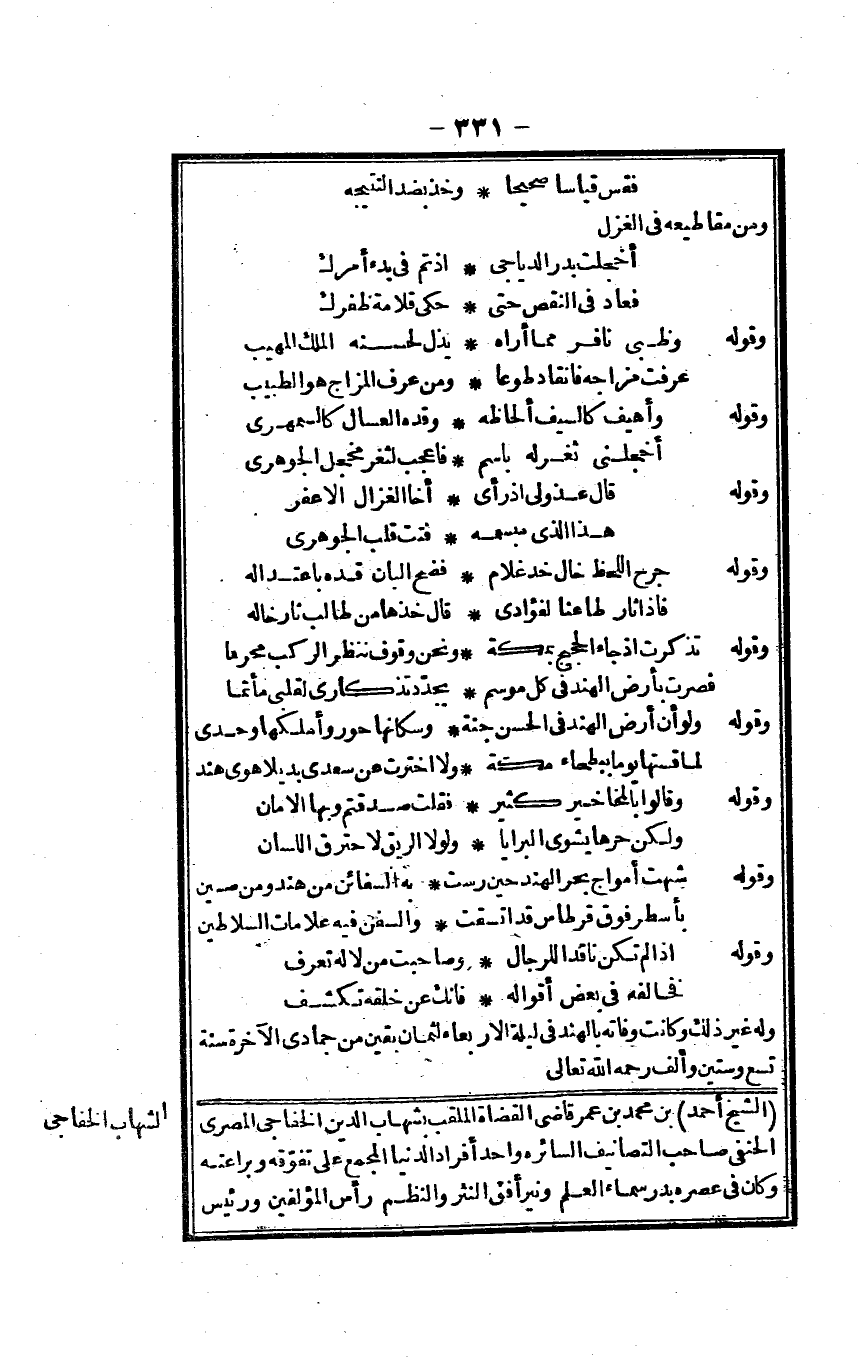 - ٣٣١ -
فقس قياسا صحيحا * وخذ بضد النتيجه
ومن مقاطيعه فى الغزل
أخجلت بدر الدياجى * اذ تم فى بدء أمرك
فعاد فى النقص حتى * حكى قلامة ظفرك
وقوله وظبى نافر مما أراه * يذل لحسنه الملك المهيب
عرفت مزاجه فانقاد طوعا * ومن عرف المزاج هو الطبيب
وقوله وأهيف كالسيف ألحاظه * وقده العسال كالسمهرى
أخجلنى ثغر له باسم * فاعجب لثغر مخجل الجوهرى
وقوله قال عذولى اذ رأى * أخا الغزال الاعفر
هذا الذى مبسمه * فتت قلب الجوهرى
وقوله جرح اللحظ خال خد غلام * فضح البان قده باعتداله
فاذا ثار طاعنا لفؤادى * قال خذها من طالب ثار خاله
وقوله تذكرت اذ جاء الحجيج بمكة * ونحن وقوف ننظر الركب محرما
فصرت بأرض الهند فى كل موسم * يجدد تذكارى لقلبى مأتما
وقوله ولو أن أرض الهند فى الحسن جنة * وسكانها حور وأملكها وحدى
لما قستها يوما ببطحاء مكة * ولا اخترت عن سعدى بديلا هوى هند
وقوله وقالوا بالمخا خير كثير * فقلت صدقتم وبها الامان
ولكن حرها يشوى البرايا * ولولا الريق لاحترق اللسان
وقوله شبهت أمواج بحر الهند حين رست * به السفائن من هند ومن صين
بأسطر فوق قرطاس قد اتسقت * والسفن فيه علامات السلاطين
وقوله اذا لم تكن ناقدا للرجال * وصاحبت من لا له تعرف
فخالفه فى بعض أقواله * فانك عن خلقه تكشف
وله غير ذلك وكانت وفاته بالهند فى ليلة الاربعاء لثمان بقين من جمادى الآخرة سنة
تسع وستين وألف رحمه الله تعالى
الشهاب الخفاجى
(الشيخ أحمد) بن محمد بن عمر قاضى القضاة الملقب بشهاب الدين الخفاجى المصرى
الحنفى صاحب التصانيف السائره واحد أفراد الدنيا المجمع على تفوقه وبراعته
وكان فى عصره بدر سماء العلم ونير أفق النثر والنظم رأس المؤلفين ورئيس